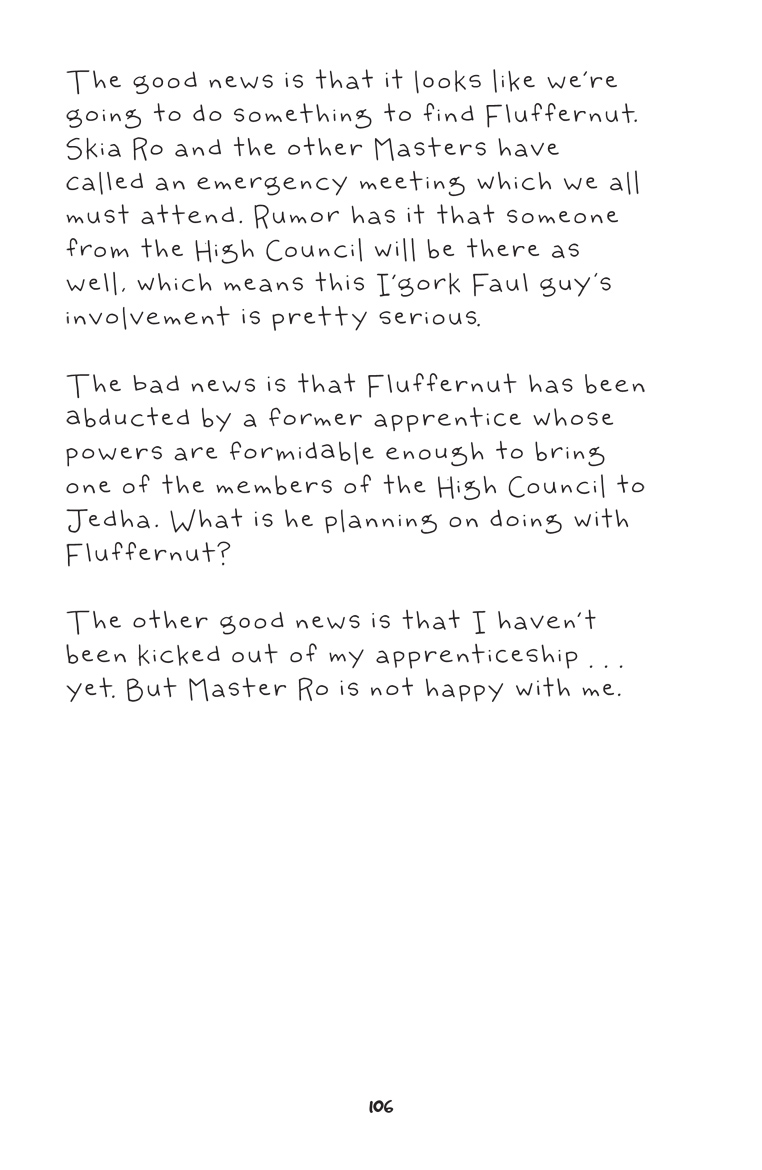 The good news is that it looks like we're
going to do something to find Fluffernut.
Skia Ro and the other Masters have
called an emergency meeting which we all
must attend. Rumor has it that someone
from the High Council will be there as
well, which means this I'gork Faul guy's
involvement is pretty serious.
The bad news is that Fluffernut has been
abducted by a former apprentice whose
powers are formidable enough to bring
one of the members of the High Council to
Jedha. What is he planning on doing with
Fluffernut?
The other good news is that I haven't
been kicked out of my apprenticeship . . .
yet. But Master Ro is not happy with me.
106